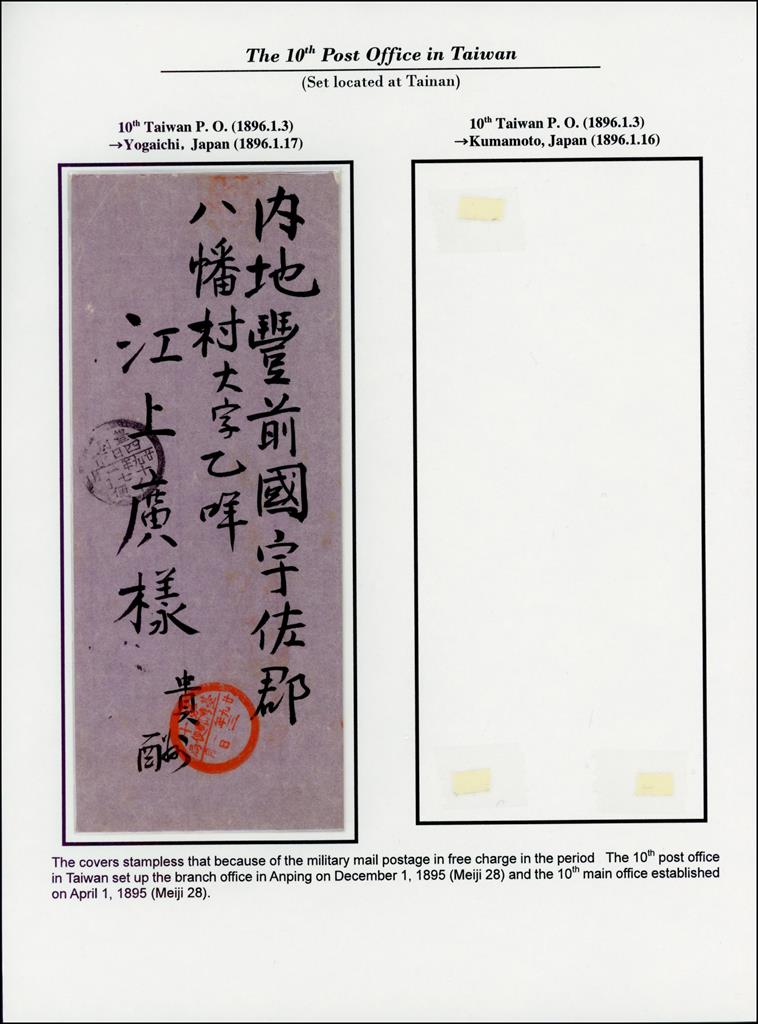 The 10th Post Office in Taiwan
(Set located at Tainan)
10th Taiwan P. O. (1896.1.3)
→Yogaichi, Japan (1896.1.17)
10th Taiwan P. O. (1896.1.3)
→Kumamoto, Japan (1896.1.16)
内地豐前國宇佐郡
八幡村大字乙咩
江上廣樣
貴酬
The covers stampless that because of the military mail postage in free charge in the period The 10th post office
in Taiwan set up the branch office in Anping on December 1, 1895 (Meiji 28) and the 10th main office established
on April 1, 1895 (Meiji 28).